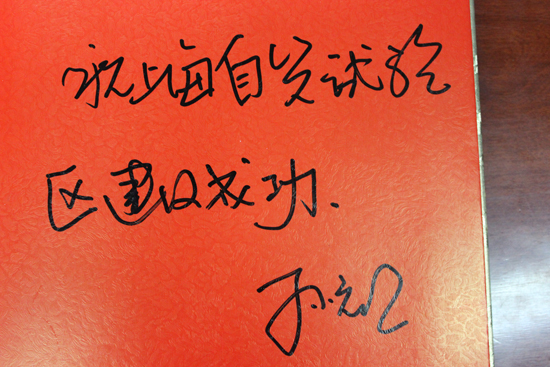 祝上海自贸试验
区建设成功.
孙元欣